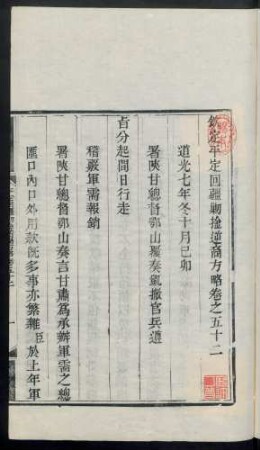 欽定平定回疆剿擒逆裔方略卷之五十二
道光七年冬十月己卯
署陝甘總督鄂山覆奏凱撤官兵道
站分起間日行走
稽嚴軍需報銷
署陝甘總督鄂山奏言甘肅為承辦軍需之總
匯口內口外用款既多事亦繁雜臣於上年軍